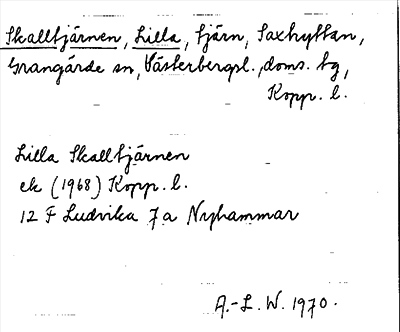 Skalltjärnen, Lilla, tjärn, Saxhyttan,
Grangärde sn, Västerbergsl., doms. tg,
Kopp. l.
Lilla Skalltjärnen
ek (1968) Kopp. l.
12 F Ludvika 7a Nyhammar
A.-L. W. 1970.